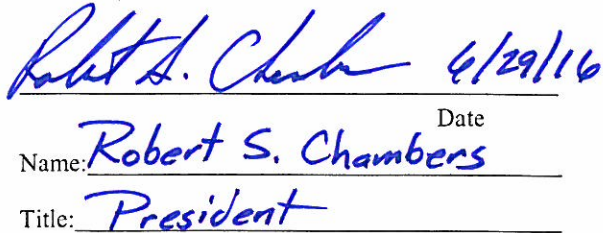 Robert S. Chambers 6/29/16
Date
Name: Robert S. Chambers
Title: President